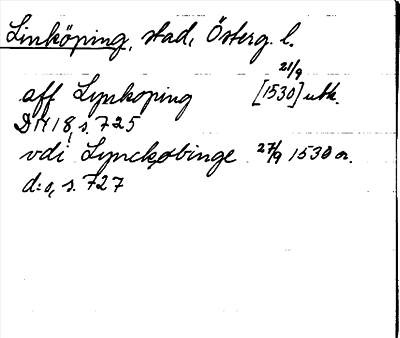 Linköping, stad, Österg. l.
21/9
aff Lynkoping [1530] utk.
DN 18, s. 725
vdi Lynckøbinge 27/9 1530 or.
d:o, s. 727